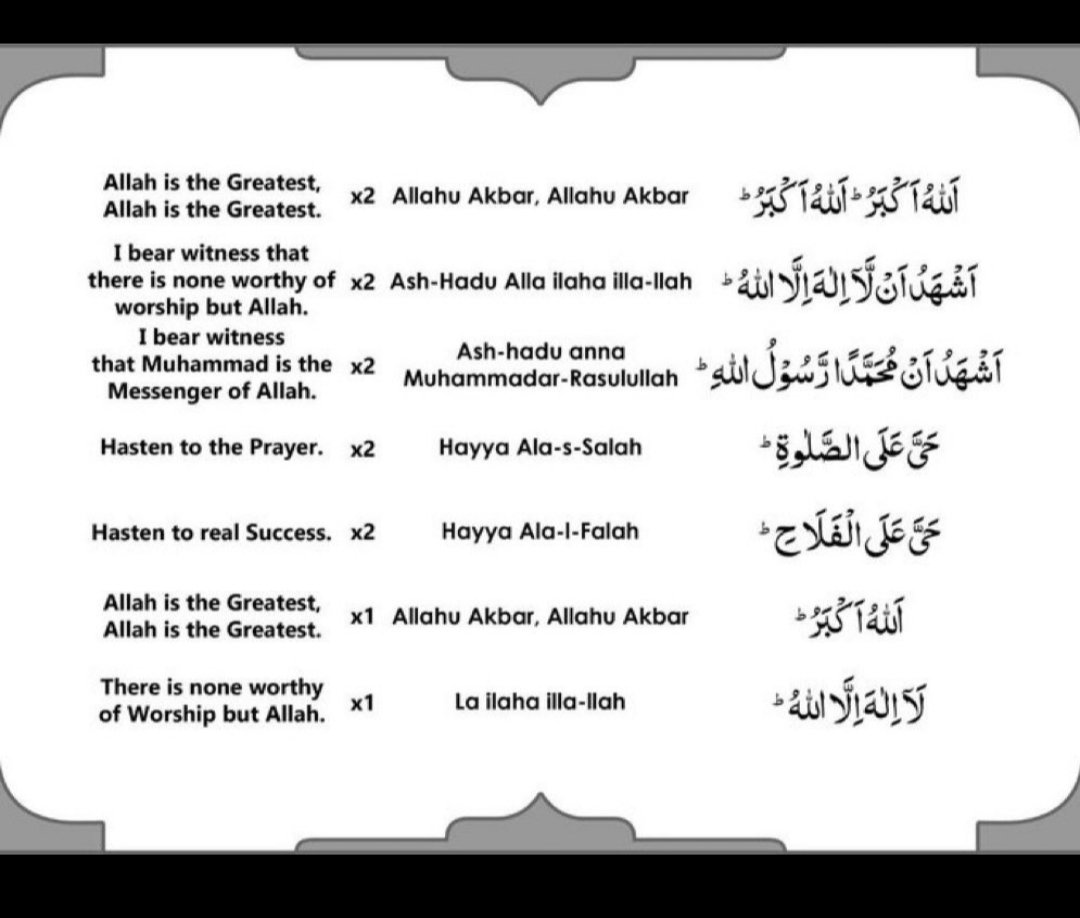 Allah is the Greatest,
Allah is the Greatest.
x2
Allahu Akbar, Allahu Akbar
اَللهُ اَكْبَرُ ؕ اَللهُ اَكْبَرُ ؕ
I bear witness that
there is none worthy of
worship but Allah.
x2
Ash-Hadu Alla ilaha illa-llah
اَشْهَدُ اَنْ لَّآ اِلٰهَ اِلَّا اللهُ ؕ
I bear witness
that Muhammad is the
Messenger of Allah.
x2
Ash-hadu anna
Muhammadar-Rasulullah
اَشْهَدُ اَنَّ مُحَمَّدًا رَّسُوْلُ اللهِ ؕ
Hasten to the Prayer.
x2
Hayya Ala-s-Salah
حَيَّ عَلَى الصَّلٰوةِ ؕ
Hasten to real Success.
x2
Hayya Ala-l-Falah
حَيَّ عَلَى الْفَلَاحِ ؕ
Allah is the Greatest,
Allah is the Greatest.
x1
Allahu Akbar, Allahu Akbar
اَللهُ اَكْبَرُ ؕ
There is none worthy
of Worship but Allah.
x1
La ilaha illa-llah
لَآ اِلٰهَ اِلَّا اللهُ ؕ